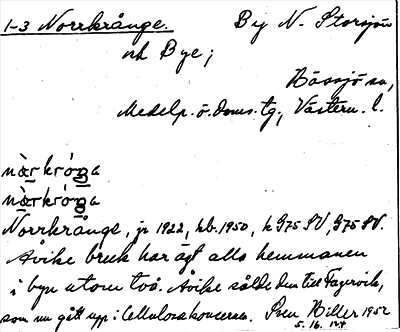 1-3 Norrkrånge. By N. Storsjön
och Bye;
Hässjö sn,
Medelp. ö. doms. tg., Västern. l.
nàrkróŋa
nàrkróŋa
Norrkrånge, jr 1922, hb. 1950, k G75 SV, G75 SV.
Åvike bruk har ägt alla hemmanen
i byn utom två. Åvike sålde den till Fagervik,
som nu gått upp i Cellulosakoncernen. Sven Hiller 1952
5. 16.